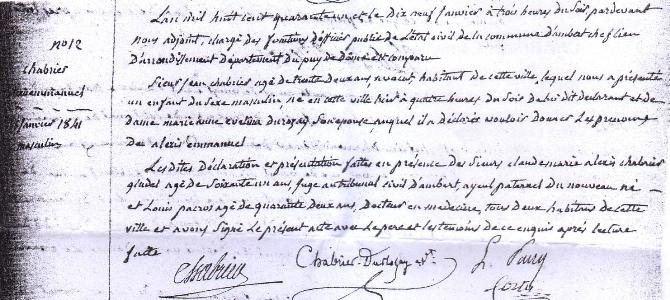 L'an mil huit cent quarante un et le Dix neuf Janvier à trois heures du soir pardevant
nous adjoint, chargé des fonctions d'officier public de l'état civil de la commune d'ambert chef lieu
D'arrondissement Département du puy de dôme est comparu
Sieur Jean chabrier agé de trente deux ans avocat habitant de cette ville, lequel nous a présenté
un enfant du sexe masculin, né en cette ville hier à quatre heures du soir de lui dit déclarant et de
Dame marie anne evelina durozay son épouse, auquel il a Déclaré vouloir Donner Les prénoms
De alexis emmanuel
Lesdites Déclaration et présentation faites en présence des sieurs claude marie alexis chabrier
agé de soixante un ans, juge au tribunal civil d'ambert ayeul paternel du nouveau né
et Louis pacros agé de quarante deux ans, Docteur en médecine, tous Deux habitans de cette
ville et avons signé Le présent acte avec Le père et les témoins de ce enquis après lecture
faite
n° 12
chabrier
emmanuel
Janvier 1841
masculin
Chabrier
Chabrier-Durozay